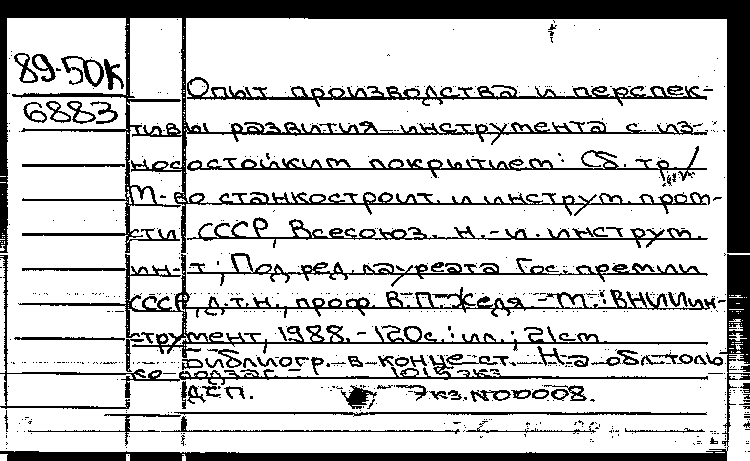 89-50К
6883
Опыт производства и перспек-
тивы развития инструмента с из-
носостойким покрытием: Сб. тр /
М-во станкостроит. и инструм. пром-
сти СССР, Всесоюз. н.-и. инструм.
ин-т; Под ред. лауреата Гос. премии
СССР, д.т.н., проф. В.П. Жедя - М.: ВНИИин-
струмент, 1988. - 120с.: ил.; 21см
Библиогр. в конце ст. Н-а обл. толь
ко подзаг. - 1015 экз
ДСП. Экз. N00008.